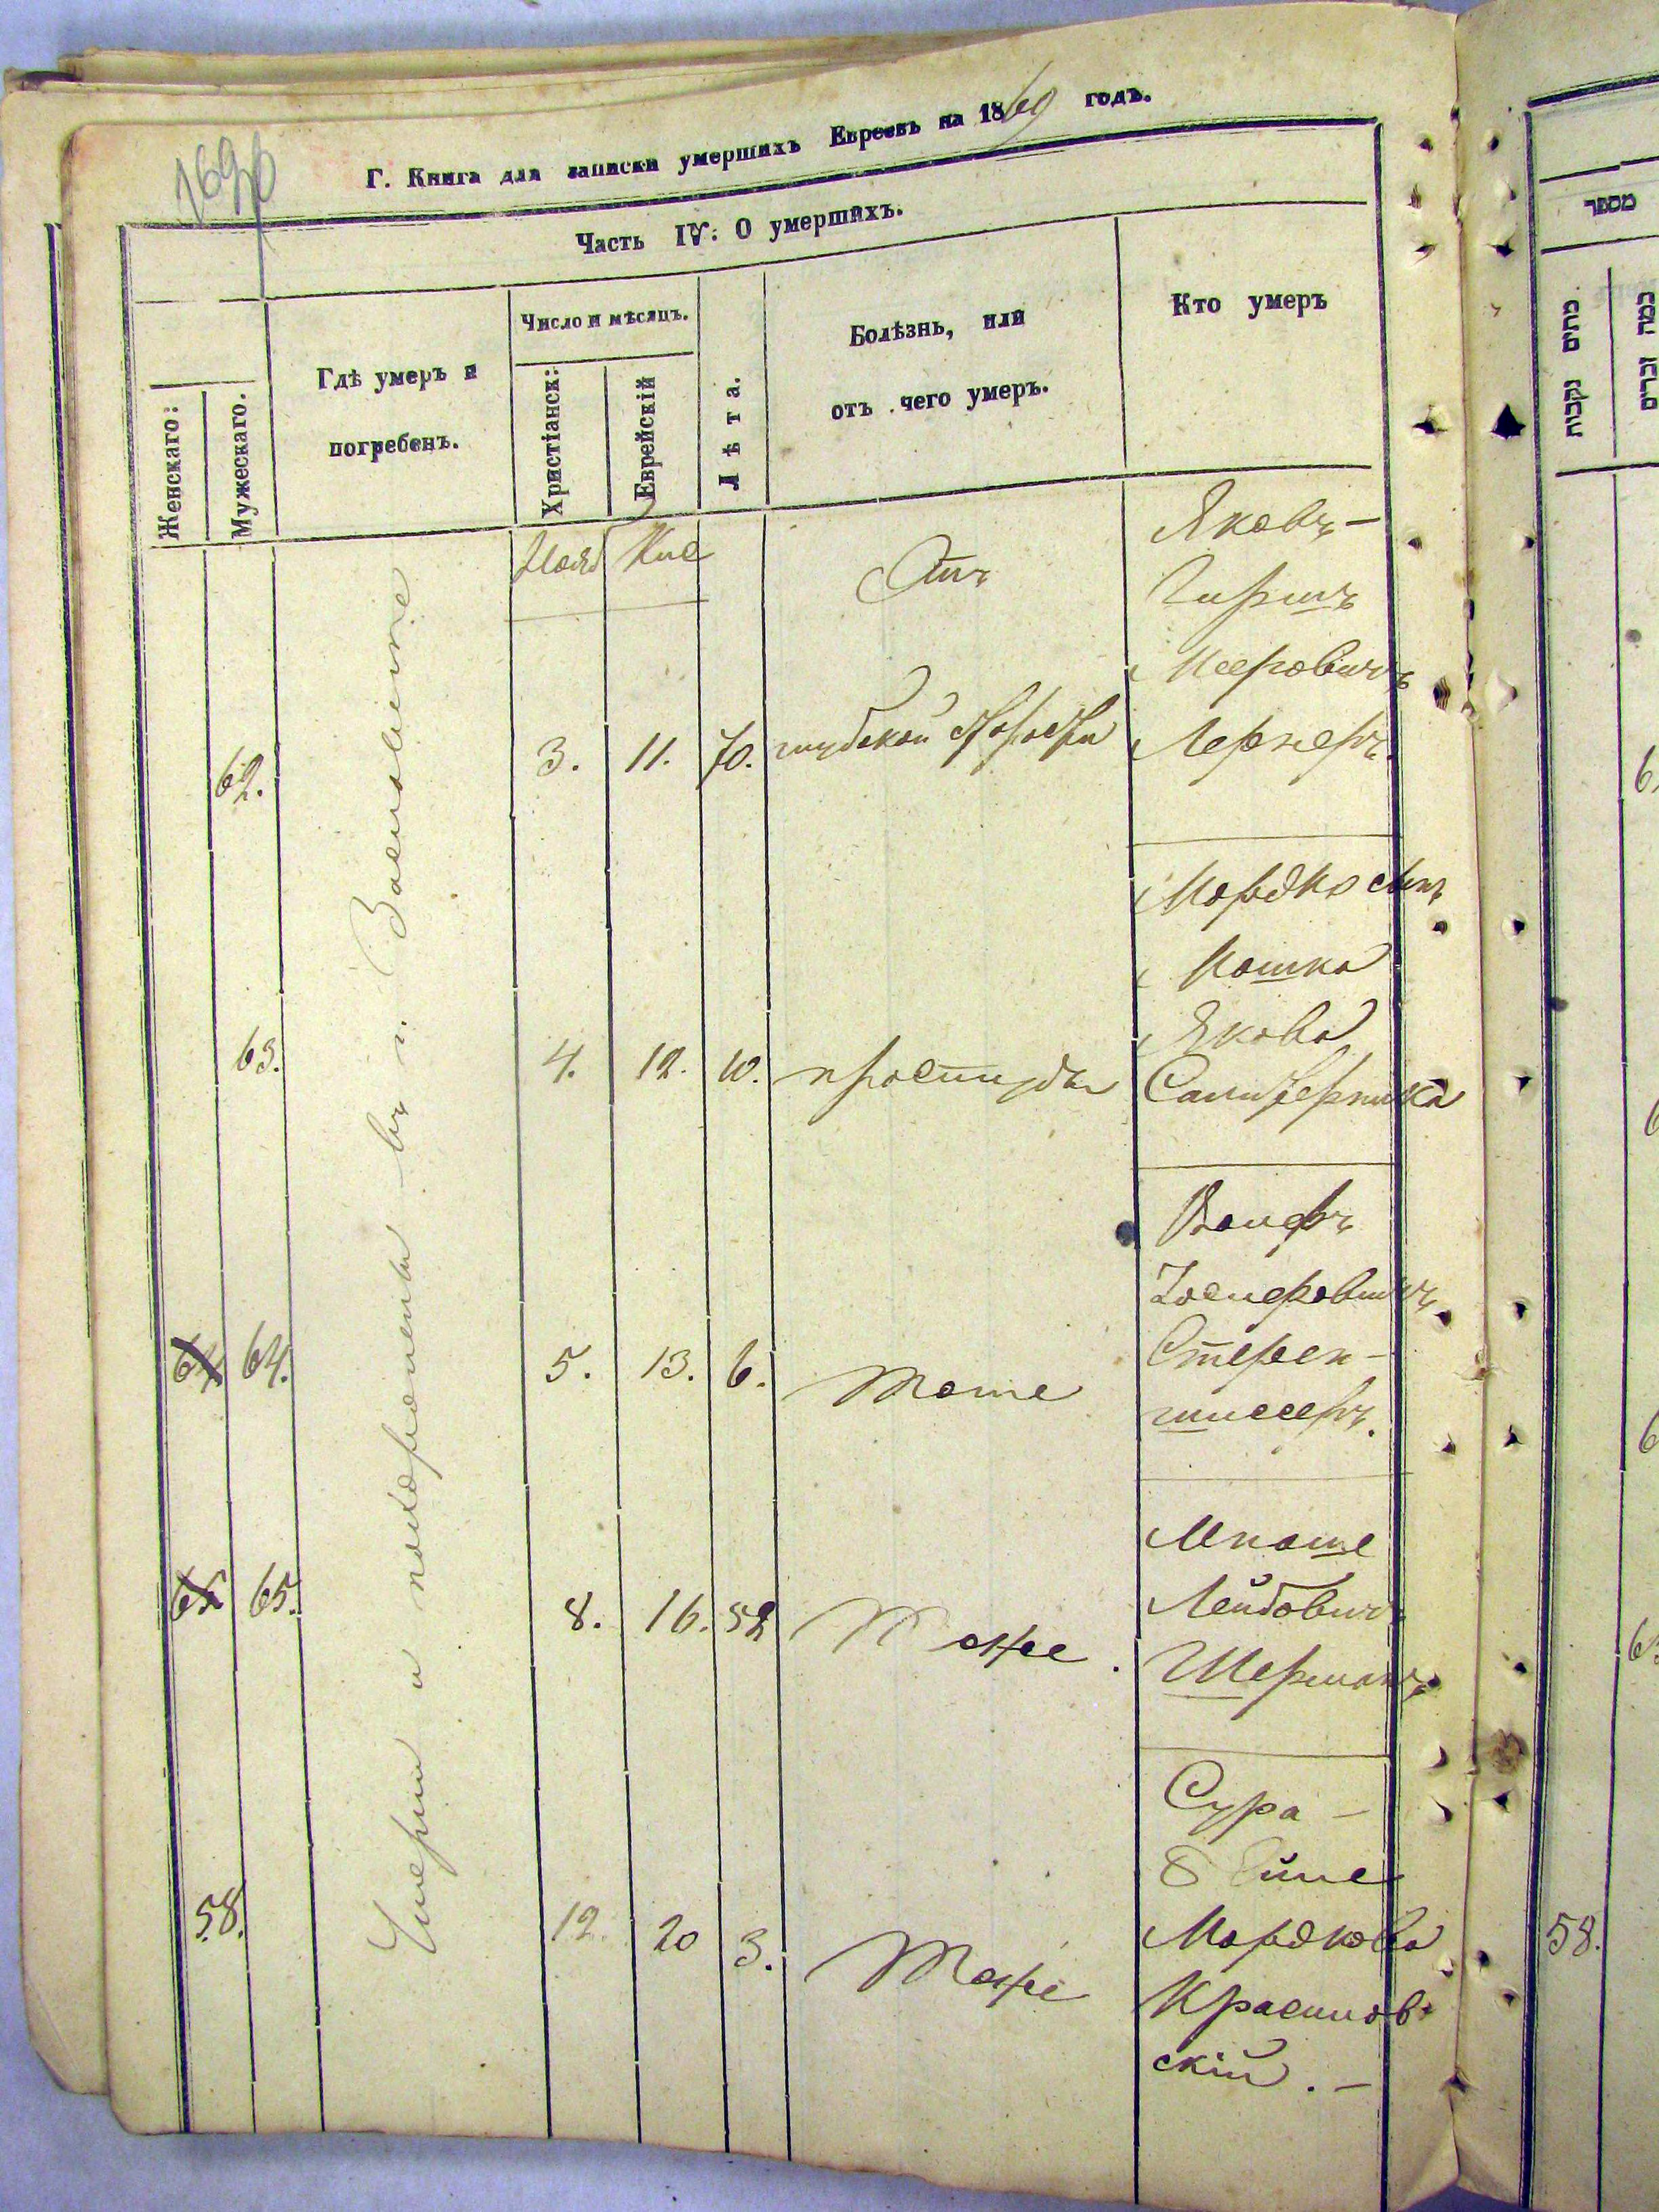 Г. Книга для записки умершихъ Евреевъ на 1869 годъ.
Часть IV: О умершихъ.
Женскаго:
Мужескаго.
Гдѣ умеръ и
погребенъ.
Число и мѣсяцъ.
Христіанск:
Еврейскій
Лѣта.
Болѣзнь, или
отъ чего умеръ.
Кто умеръ
Нояб
Кис
Умерли и похоронены въ м. Васильевке
62.
3.
11.
70.
Отъ
глубокой старости
Яковъ-
Гиршъ
Мееровичъ
Лернеръ.
63.
4.
12.
10.
простуды
Мордко сынъ
Мошка
Якова
64
64.
5.
13.
6.
тоже
Вольфъ
Іосиеровичъ
Стерен-
шиссеръ.
65
65.
8.
16.
52
тоже.
Мнаше
Лейбовичъ
Шерманъ
58.
12.
20
3.
тоже
Сура -
Мордкова
Красинов-
скій. -
מספר
כתים נקבות
כמה זכרים
58.